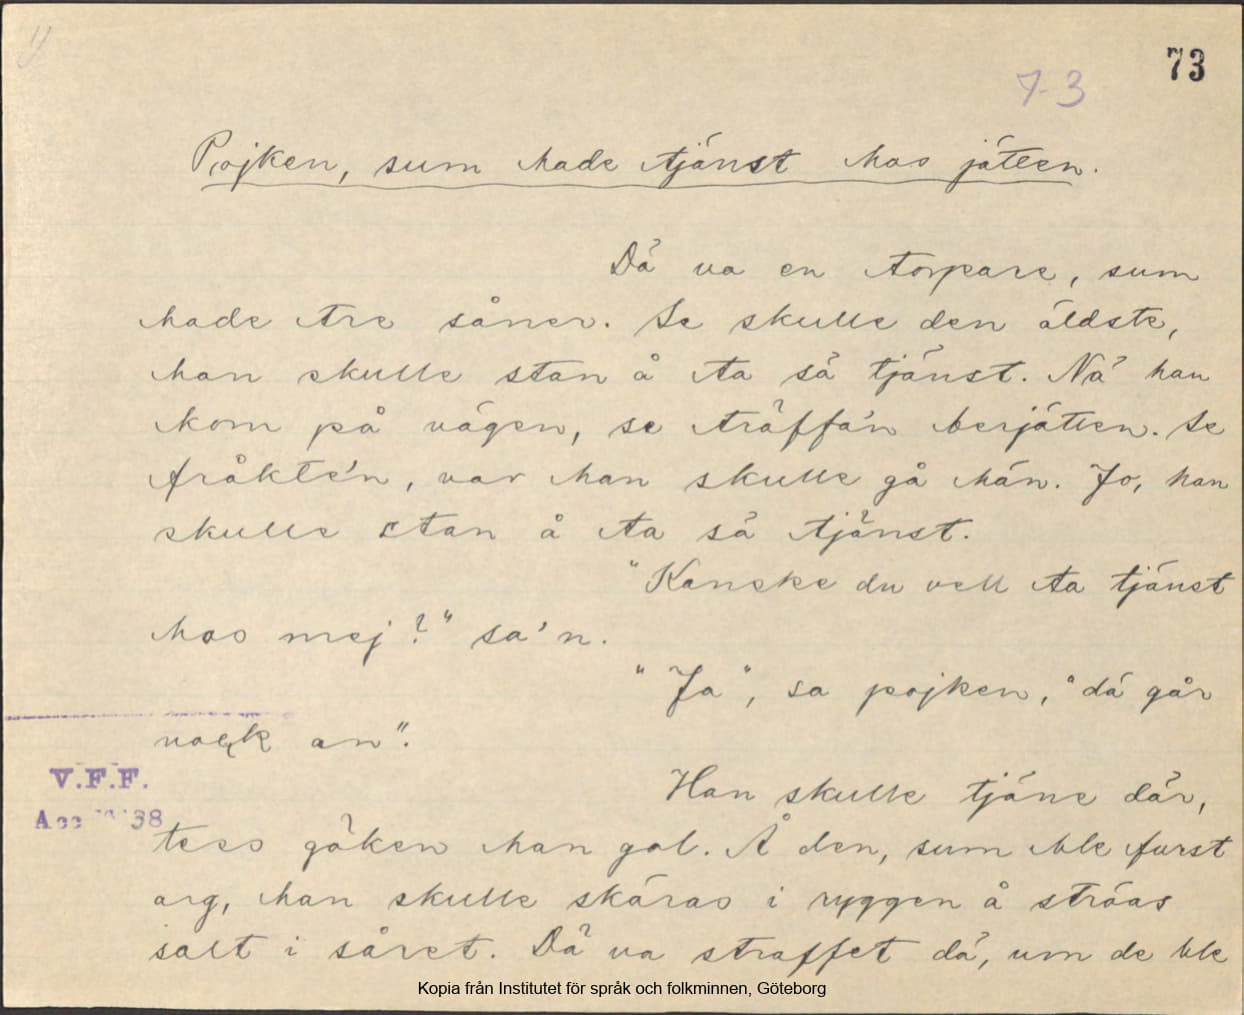 73
7-3
Pojken, sum hade tjänst hos jätten.
Dä va en torpare, sum
hade tre såner. Se skulle den äldste,
han skulle stan å ta sä tjänst. Nä han
kom på vägen, se träffa'n berjätten. Se
fråkte'n, var han skulle gå hän. Jo, han
skulle stan å ta sä tjänst.
"Kanske du vell ta tjänst
hos mej?" sa'n.
"Ja", sa pojken, "dä går
an".
V.F.F.
Han skulle tjäne där,
Acc
38
tess göken han gol. Å den, sum ble furst
arg, han skulle skäras i ryggen å ströas
salt i såret. Dä va straffet dä, um de ble
Kopia från Institutet för språk och folkminnen, Göteborg